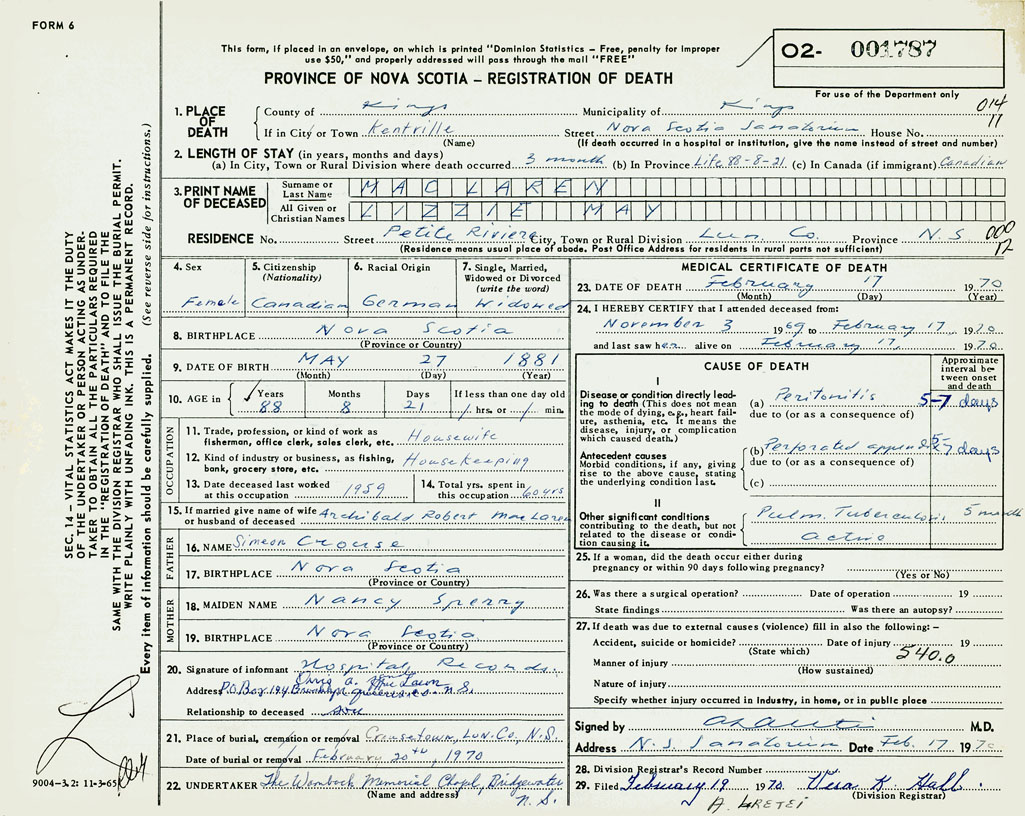 FORM 6
This form, if placed in an envelope, on which is printed "Dominion Statistics – Free, penalty for improper
use $50," and properly addressed will pass through the mail "FREE"
PROVINCE OF NOVA SCOTIA – REGISTRATION OF DEATH
02- 001787
For use of the Department only
014
11
1. PLACE OF DEATH
County of Kings Municipality of Kings
If in City or Town Kentville Street Nova Scotia Sanatorium House No.
(Name) (If death occurred in a hospital or institution, give the name instead of street and number)
2. LENGTH OF STAY (in years, months and days)
(a) In City, Town or Rural Division where death occurred 3 month (b) In Province Life 88-8-21 (c) In Canada (if immigrant) Canadian
3. PRINT NAME OF DECEASED
Surname or Last Name MAC LAREN
All Given or Christian Names LIZZIE MAY
RESIDENCE No. Street Petite Riviere City, Town or Rural Division Lun. Co. Province N.S
(Residence means usual place of abode. Post Office Address for residents in rural parts not sufficient)
000
12
4. Sex
Female
5. Citizenship
(Nationality)
Canadian
6. Racial Origin
German
7. Single, Married,
Widowed or Divorced
(write the word)
Widowed
8. BIRTHPLACE Nova Scotia
(Province or Country)
9. DATE OF BIRTH MAY 27 1881
(Month) (Day) (Year)
10. AGE in Years Months Days If less than one day old
88 8 21 / hrs. or / min.
OCCUPATION
11. Trade, profession, or kind of work as
fisherman, office clerk, sales clerk, etc. Housewife
12. Kind of industry or business, as fishing,
bank, grocery store, etc. Housekeeping
13. Date deceased last worked
at this occupation 1959
14. Total yrs. spent in
this occupation 60 yrs
15. If married give name of wife
or husband of deceased Archibald Robert MacLaren
FATHER
16. NAME Simeon Crouse
17. BIRTHPLACE Nova Scotia
(Province or Country)
MOTHER
18. MAIDEN NAME Nancy Sperry
19. BIRTHPLACE Nova Scotia
(Province or Country)
20. Signature of informant Hospital Records
Address P.O. Box 194 N.S.
Relationship to deceased son
21. Place of burial, cremation or removal Crousetown, Lun. Co., N.S.
Date of burial or removal February 20th, 1970
22. UNDERTAKER The Memorial Chapel, Bridgewater
(Name and address) N.S.
MEDICAL CERTIFICATE OF DEATH
23. DATE OF DEATH February 17 1970
(Month) (Day) (Year)
24. I HEREBY CERTIFY that I attended deceased from:
November 3 1969 to February 17, 1970
and last saw her alive on February 17, 1970
CAUSE OF DEATH
Approximate
interval be-
tween onset
and death
I
Disease or condition directly lead-
ing to death (This does not mean
the mode of dying, e.g., heart fail-
ure, asthenia, etc. It means the
disease, injury, or complication
which caused death.)
(a) Peritonitis 5-7 days
due to (or as a consequence of)
Antecedent causes
Morbid conditions, if any, giving
rise to the above cause, stating
the underlying condition last.
(b) Perforated 5-7 days
due to (or as a consequence of)
(c)
II
Other significant conditions
contributing to the death, but not
related to the disease or condi-
tion causing it.
Pulm. Tuberculosis 5 month
active
25. If a woman, did the death occur either during
pregnancy or within 90 days following pregnancy?
(Yes or No)
26. Was there a surgical operation? Date of operation 19
State findings Was there an autopsy?
27. If death was due to external causes (violence) fill in also the following: –
Accident, suicide or homicide? Date of injury 19
(State which) 540.0
Manner of injury
(How sustained)
Nature of injury
Specify whether injury occurred in industry, in home, or in public place
Signed by M.D.
Address N.S. Sanatorium Date Feb. 17 1970
28. Division Registrar's Record Number
29. Filed February 19 1970 K Hall
(Division Registrar)
SEC. 14 – VITAL STATISTICS ACT MAKES IT THE DUTY
OF THE UNDERTAKER OR PERSON ACTING AS UNDER-
TAKER TO OBTAIN ALL THE PARTICULARS REQUIRED
IN THE "REGISTRATION OF DEATH" AND TO FILE THE
SAME WITH THE DIVISION REGISTRAR WHO SHALL ISSUE THE BURIAL PERMIT.
WRITE PLAINLY WITH UNFADING INK. THIS IS A PERMANENT RECORD.
Every item of information should be carefully supplied. (See reverse side for instructions.)
9004-3.2: 11-3-65